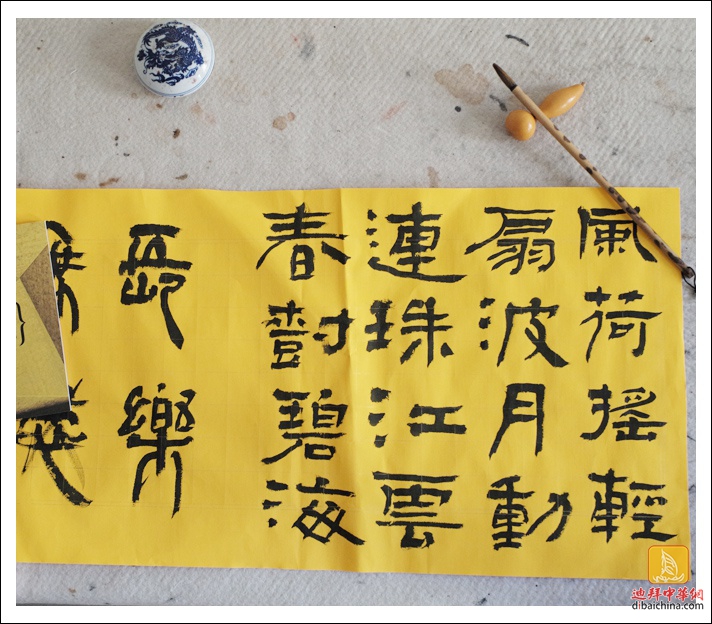 風荷搖輕
扇波月動
連珠江雲
春樹碧海
長樂
迪拜中華網
dibaichina.com